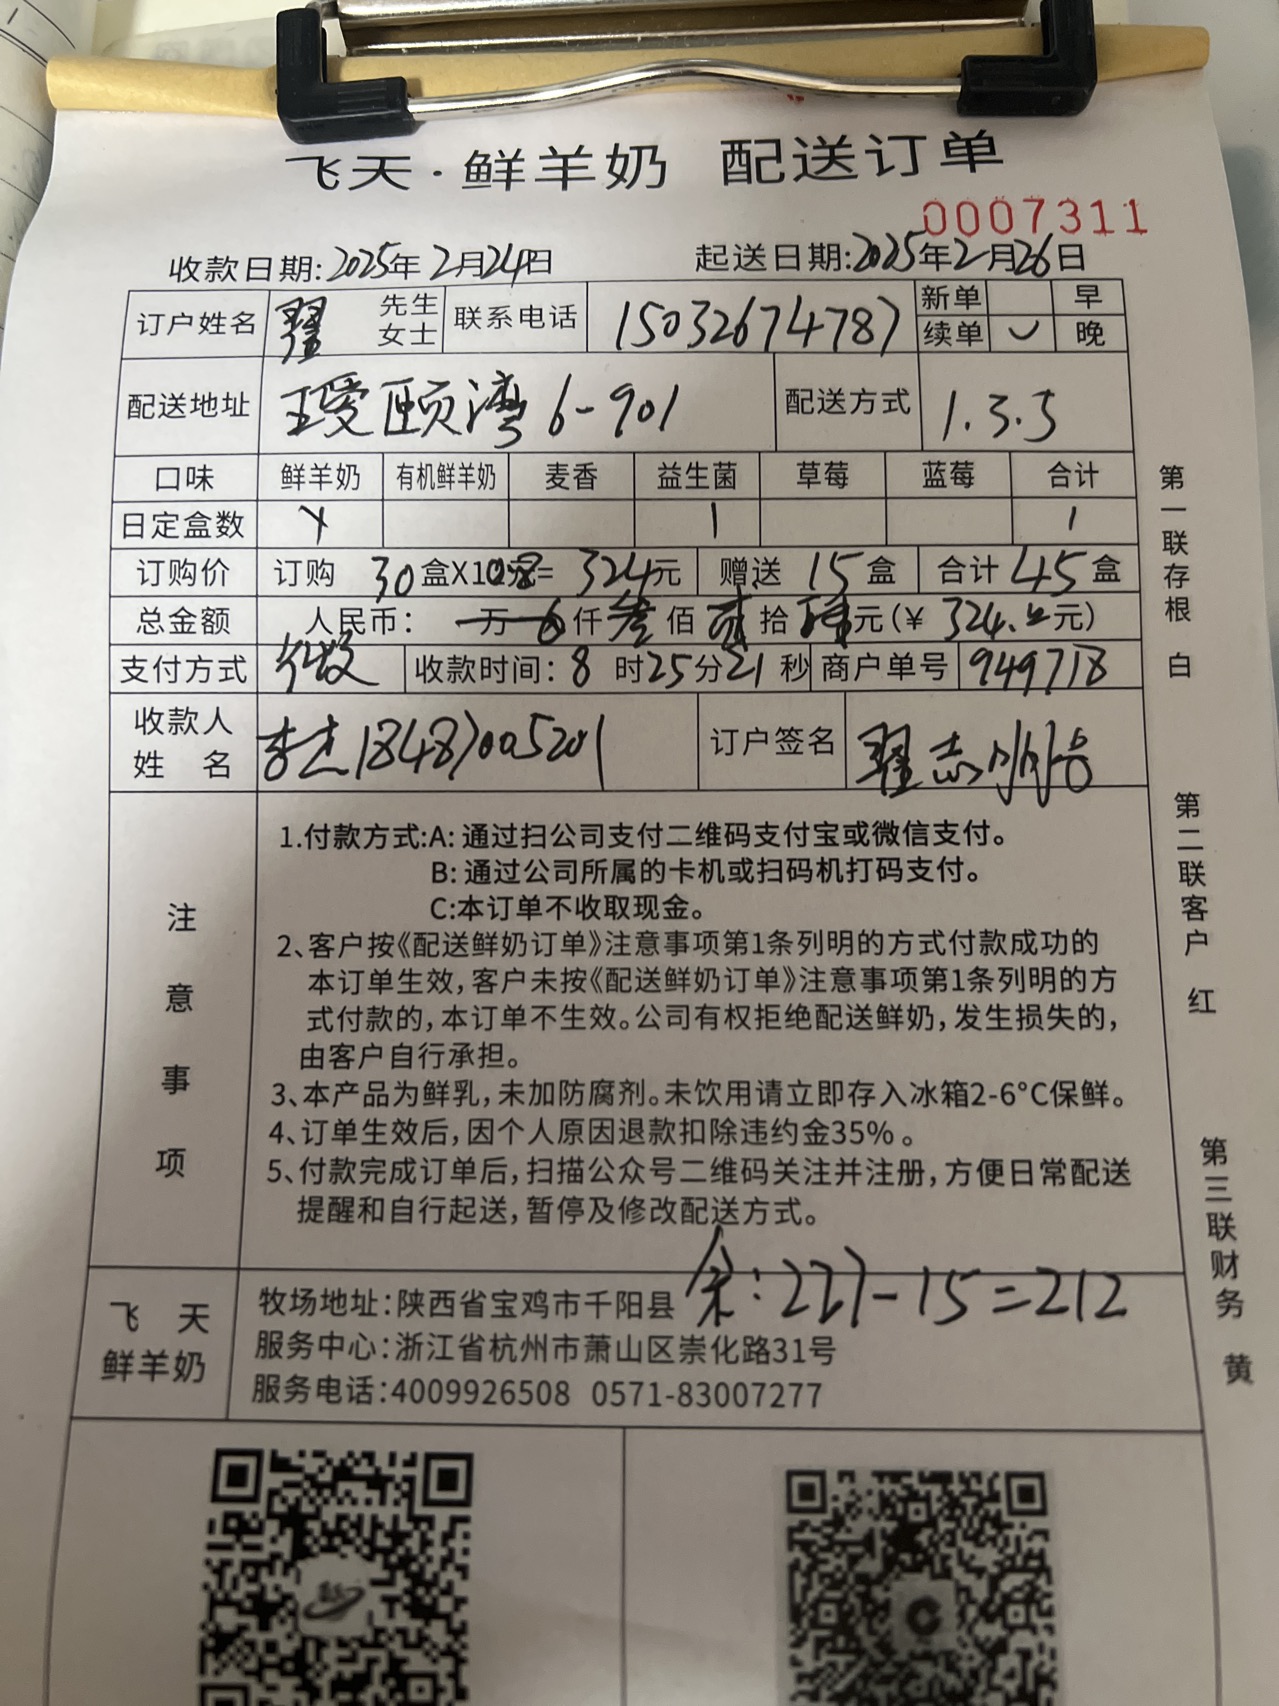 飞天·鲜羊奶 配送订单
0007311
收款日期:2025年2月24日 起送日期:2025年2月26日
订户姓名 翟 先生 女士 联系电话 15032674787 新单 早
续单 ✓ 晚
配送地址 瑷颐湾6-901 配送方式 1.3.5
口味 鲜羊奶 有机鲜羊奶 麦香 益生菌 草莓 蓝莓 合计
日定盒数 1 1
订购价 订购 30盒X10.8元= 324元 赠送 15盒 合计 45盒
总金额 人民币: 万 仟叁佰贰拾肆元(¥ 324.00元)
支付方式 收款时间:8时25分21秒 商户单号 949718
收款人
姓 名 李杰18487005201 订户签名 翟志
注意事项
1.付款方式:A:通过扫公司支付二维码支付宝或微信支付。
B:通过公司所属的卡机或扫码机打码支付。
C:本订单不收取现金。
2、客户按《配送鲜奶订单》注意事项第1条列明的方式付款成功的
本订单生效,客户未按《配送鲜奶订单》注意事项第1条列明的方
式付款的,本订单不生效。公司有权拒绝配送鲜奶,发生损失的,
由客户自行承担。
3、本产品为鲜乳,未加防腐剂。未饮用请立即存入冰箱2-6°C保鲜。
4、订单生效后,因个人原因退款扣除违约金35%。
5、付款完成订单后,扫描公众号二维码关注并注册,方便日常配送
提醒和自行起送,暂停及修改配送方式。
余:227-15=212
飞 天
鲜羊奶
牧场地址:陕西省宝鸡市千阳县
服务中心:浙江省杭州市萧山区崇化路31号
服务电话:4009926508 0571-83007277
第一联存根 白
第二联客户 红
第三联财务 黄